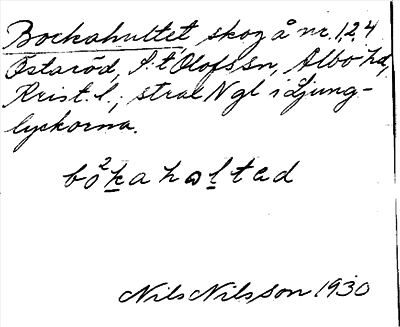 Bockahultet, skog å nr. 1, 2, 4
Östaröd, S:t Olofs sn, Albo hd,
Krist. l.; strax N gl i Ljung-
lyckorna.
bo²kahultad
Nils Nilsson 1930